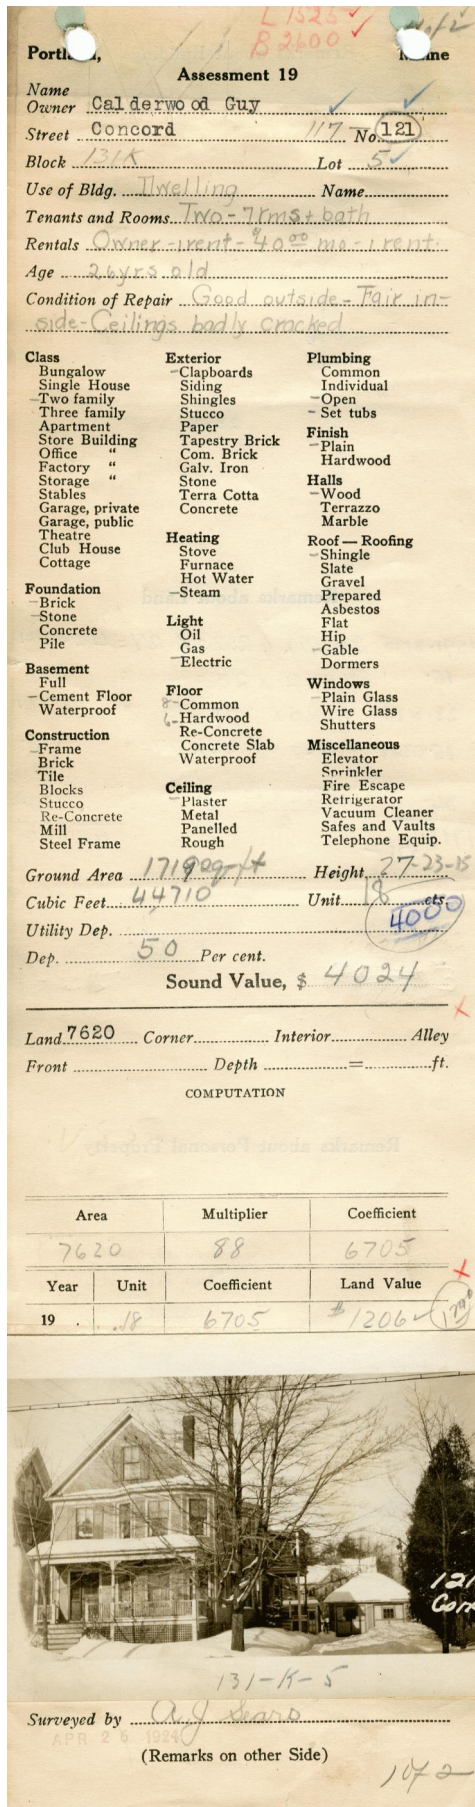 L 1525
B 2600
1 of 2
Portland, Maine
Assessment 19
Name
Owner Calderwood Guy
Street Concord 117 - No. 121
Block 131K Lot 5
Use of Bldg. Dwelling Name
Tenants and Rooms Two - 7 rms + bath
Rentals Owner - 1 rent - $40.00 mo - 1 rent.
Age 26 yrs old
Condition of Repair Good outside - Fair in-
side - Ceilings badly cracked
Class
Bungalow
Single House
- Two family
Three family
Apartment
Store Building
Office "
Factory "
Storage "
Stables
Garage, private
Garage, public
Theatre
Club House
Cottage
Foundation
- Brick
- Stone
Concrete
Pile
Basement
Full
- Cement Floor
Waterproof
Construction
- Frame
Brick
Tile
Blocks
Stucco
Re-Concrete
Mill
Steel Frame
Exterior
- Clapboards
Siding
Shingles
Stucco
Paper
Tapestry Brick
Com. Brick
Galv. Iron
Stone
Terra Cotta
Concrete
Heating
Stove
Furnace
Hot Water
- Steam
Light
Oil
Gas
- Electric
Floor
8 - Common
6 - Hardwood
Re-Concrete
Concrete Slab
Waterproof
Ceiling
- Plaster
Metal
Panelled
Rough
Plumbing
Common
Individual
- Open
- Set tubs
Finish
- Plain
Hardwood
Halls
- Wood
Terrazzo
Marble
Roof — Roofing
- Shingle
Slate
Gravel
Prepared
Asbestos
Flat
Hip
- Gable
Dormers
Windows
- Plain Glass
Wire Glass
Shutters
Miscellaneous
Elevator
Sprinkler
Fire Escape
Refrigerator
Vacuum Cleaner
Safes and Vaults
Telephone Equip.
Ground Area 1719 sq-ft Height 27-23-15
Cubic Feet 44710 Unit 18 cts.
4000
Utility Dep.
Dep. 50 Per cent.
Sound Value, $ 4024
Land 7620 Corner Interior Alley
Front Depth = ft.
COMPUTATION
Area Multiplier Coefficient
7620 88 6705
Year Unit Coefficient Land Value
19 .18 6705 $1206
121
Con
131-K-5
Surveyed by A J Sears
APR 25 1924
(Remarks on other Side)
1 of 2